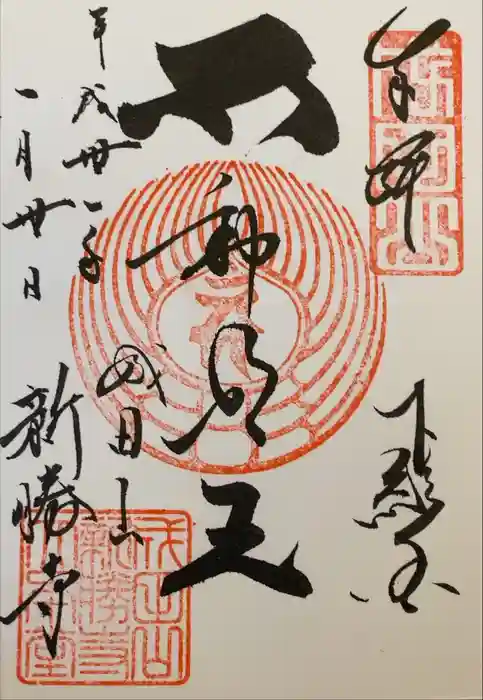 奉拝
下総国
不動明王
平成卅一年
一月廿日
成田山
新勝寺
成田山
新勝寺